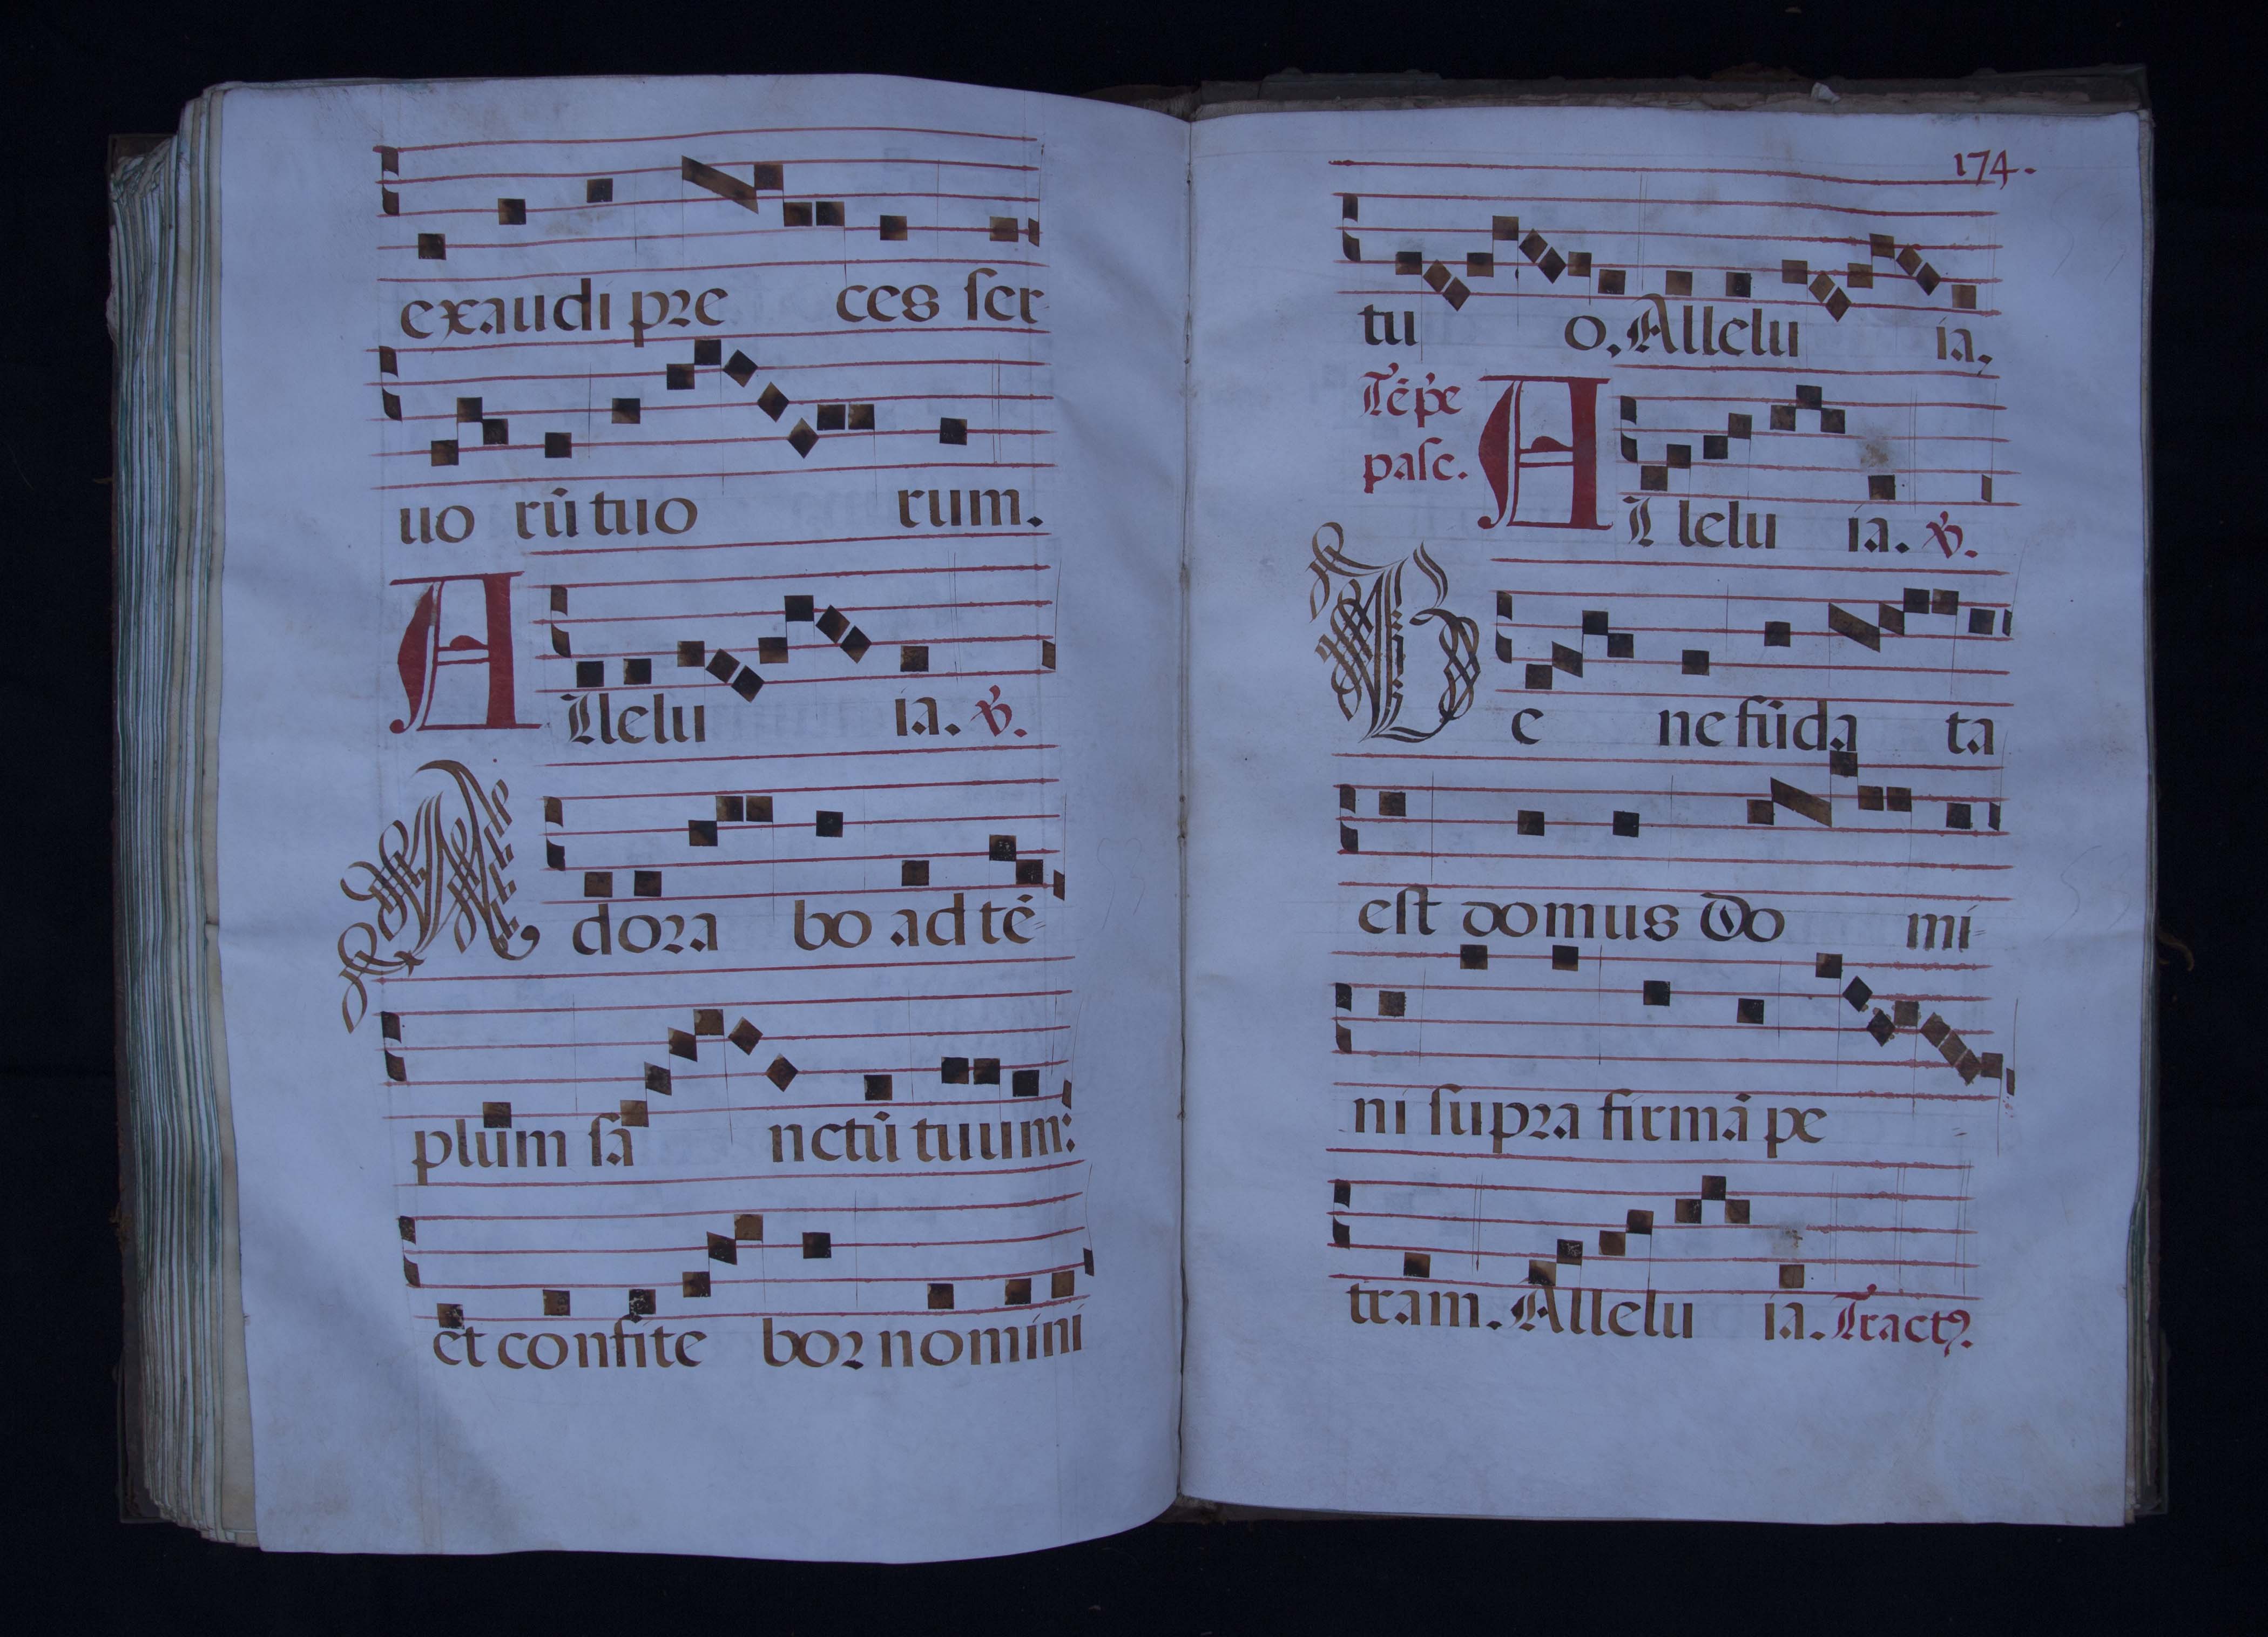 exaudi pre ces ſer
uo rū tuo rum.
Allelu ia. ℣.
Adora bo ad tē-
plum ſa nctū tuum:
et confite bor nomini
174.
tu o. Allelu ia.
Tēpe
paſc.
Al lelu ia. ℣.
Be ne fūda ta
eſt domus Do mi-
ni ſupra firmā pe -
tram. Allelu ia. Tractꝰ.